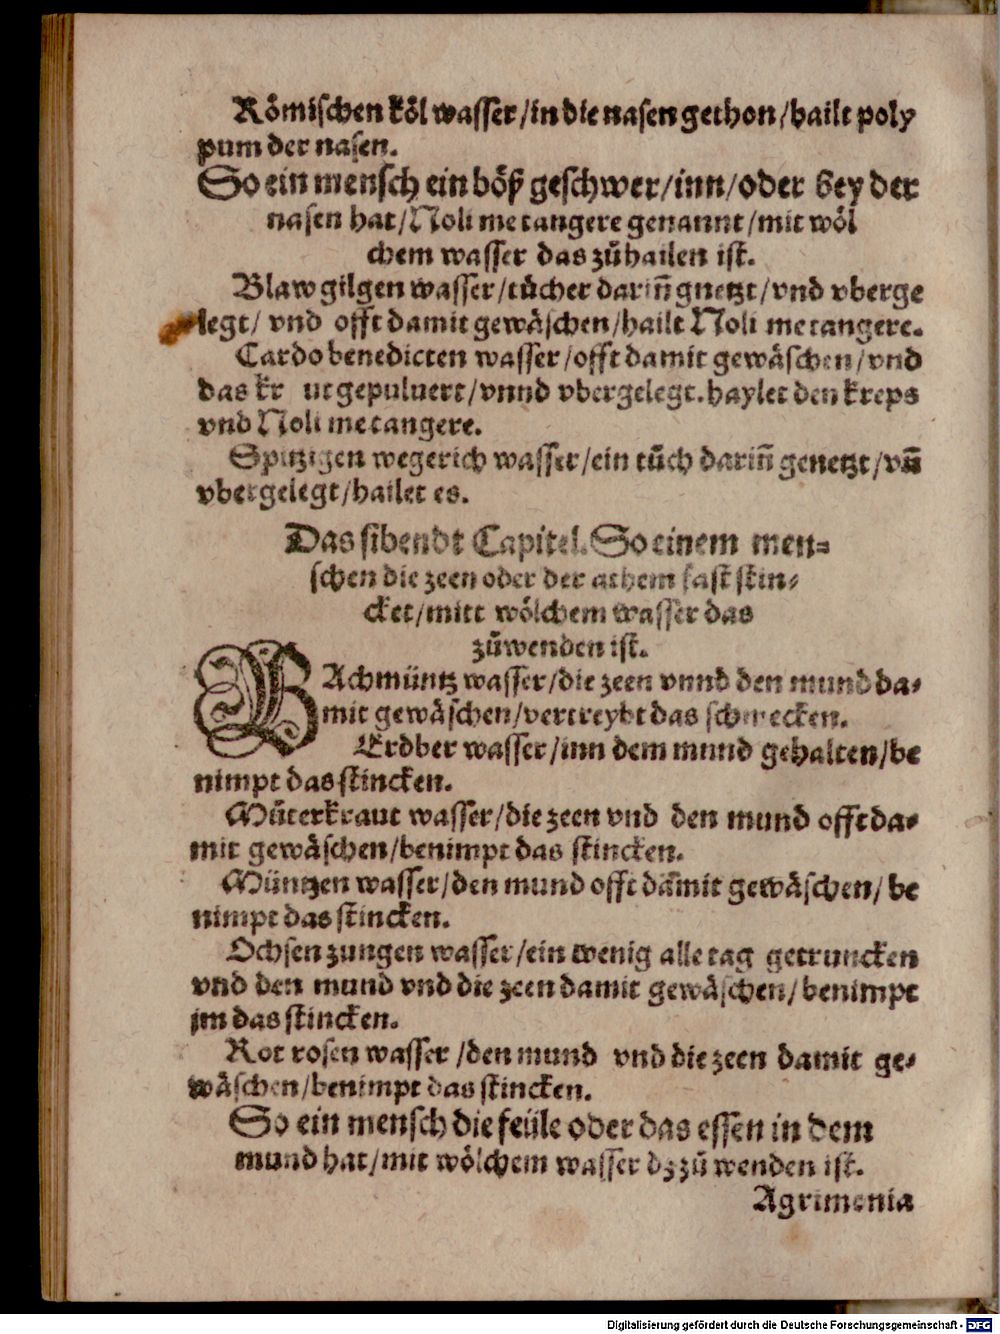 Römischen köl wasser/in die nasen gethon/hailt poly
pum der nasen.
So ein mensch ein böß geschwer/inn/oder bey der
nasen hat/Noli me tangere genannt/mit wöl
chem wasser das zůhailen ist.
Blaw gilgen wasser/tücher dariñ gnetzt/vnd vberge
legt/ vnd offt damit gewäschen/hailt Noli me tangere.
Cardobenedicten wasser/offt damit gewäschen/vnd
das kr ut gepuluert/vnnd vbergelegt.haylet den kreps
vnd Noli me tangere.
Spitzigen wegerich wasser/ein tůch dariñ genetzt/vñ
vbergelegt/hailet es.
Das sibendt Capitel. So einem men⸗
schen die zeen oder der athem fast stin⸗
cket/mitt wölchem wasser das
zůwenden ist.
BAchmüntz wasser/die zeen vnnd den mund da⸗
mit gewäschen/vertreybt das schmecken.
Erdber wasser/inn dem mund gehalten/be
nimpt das stincken.
Můterkraut wasser/die zeen vnd den mund offt da⸗
mit gewäschen/benimpt das stincken.
Müntzen wasser/den mund offt damit gewäschen/ be
nimpt das stincken.
Ochsen zungen wasser/ein wenig alle tag getruncken
vnd den mund vnd die zeen damit gewäschen/ benimpt
jm das stincken.
Rot rosen wasser /den mund vnd die zeen damit ge⸗
wäschen/benimpt das stincken.
So ein mensch die feüle oder das essen in dem
mund hat/mit wölchem wasser dz zů wenden ist.
Agrimonia
Digitalisierung gefördert durch die Deutsche Forschungsgemeinschaft - DFG